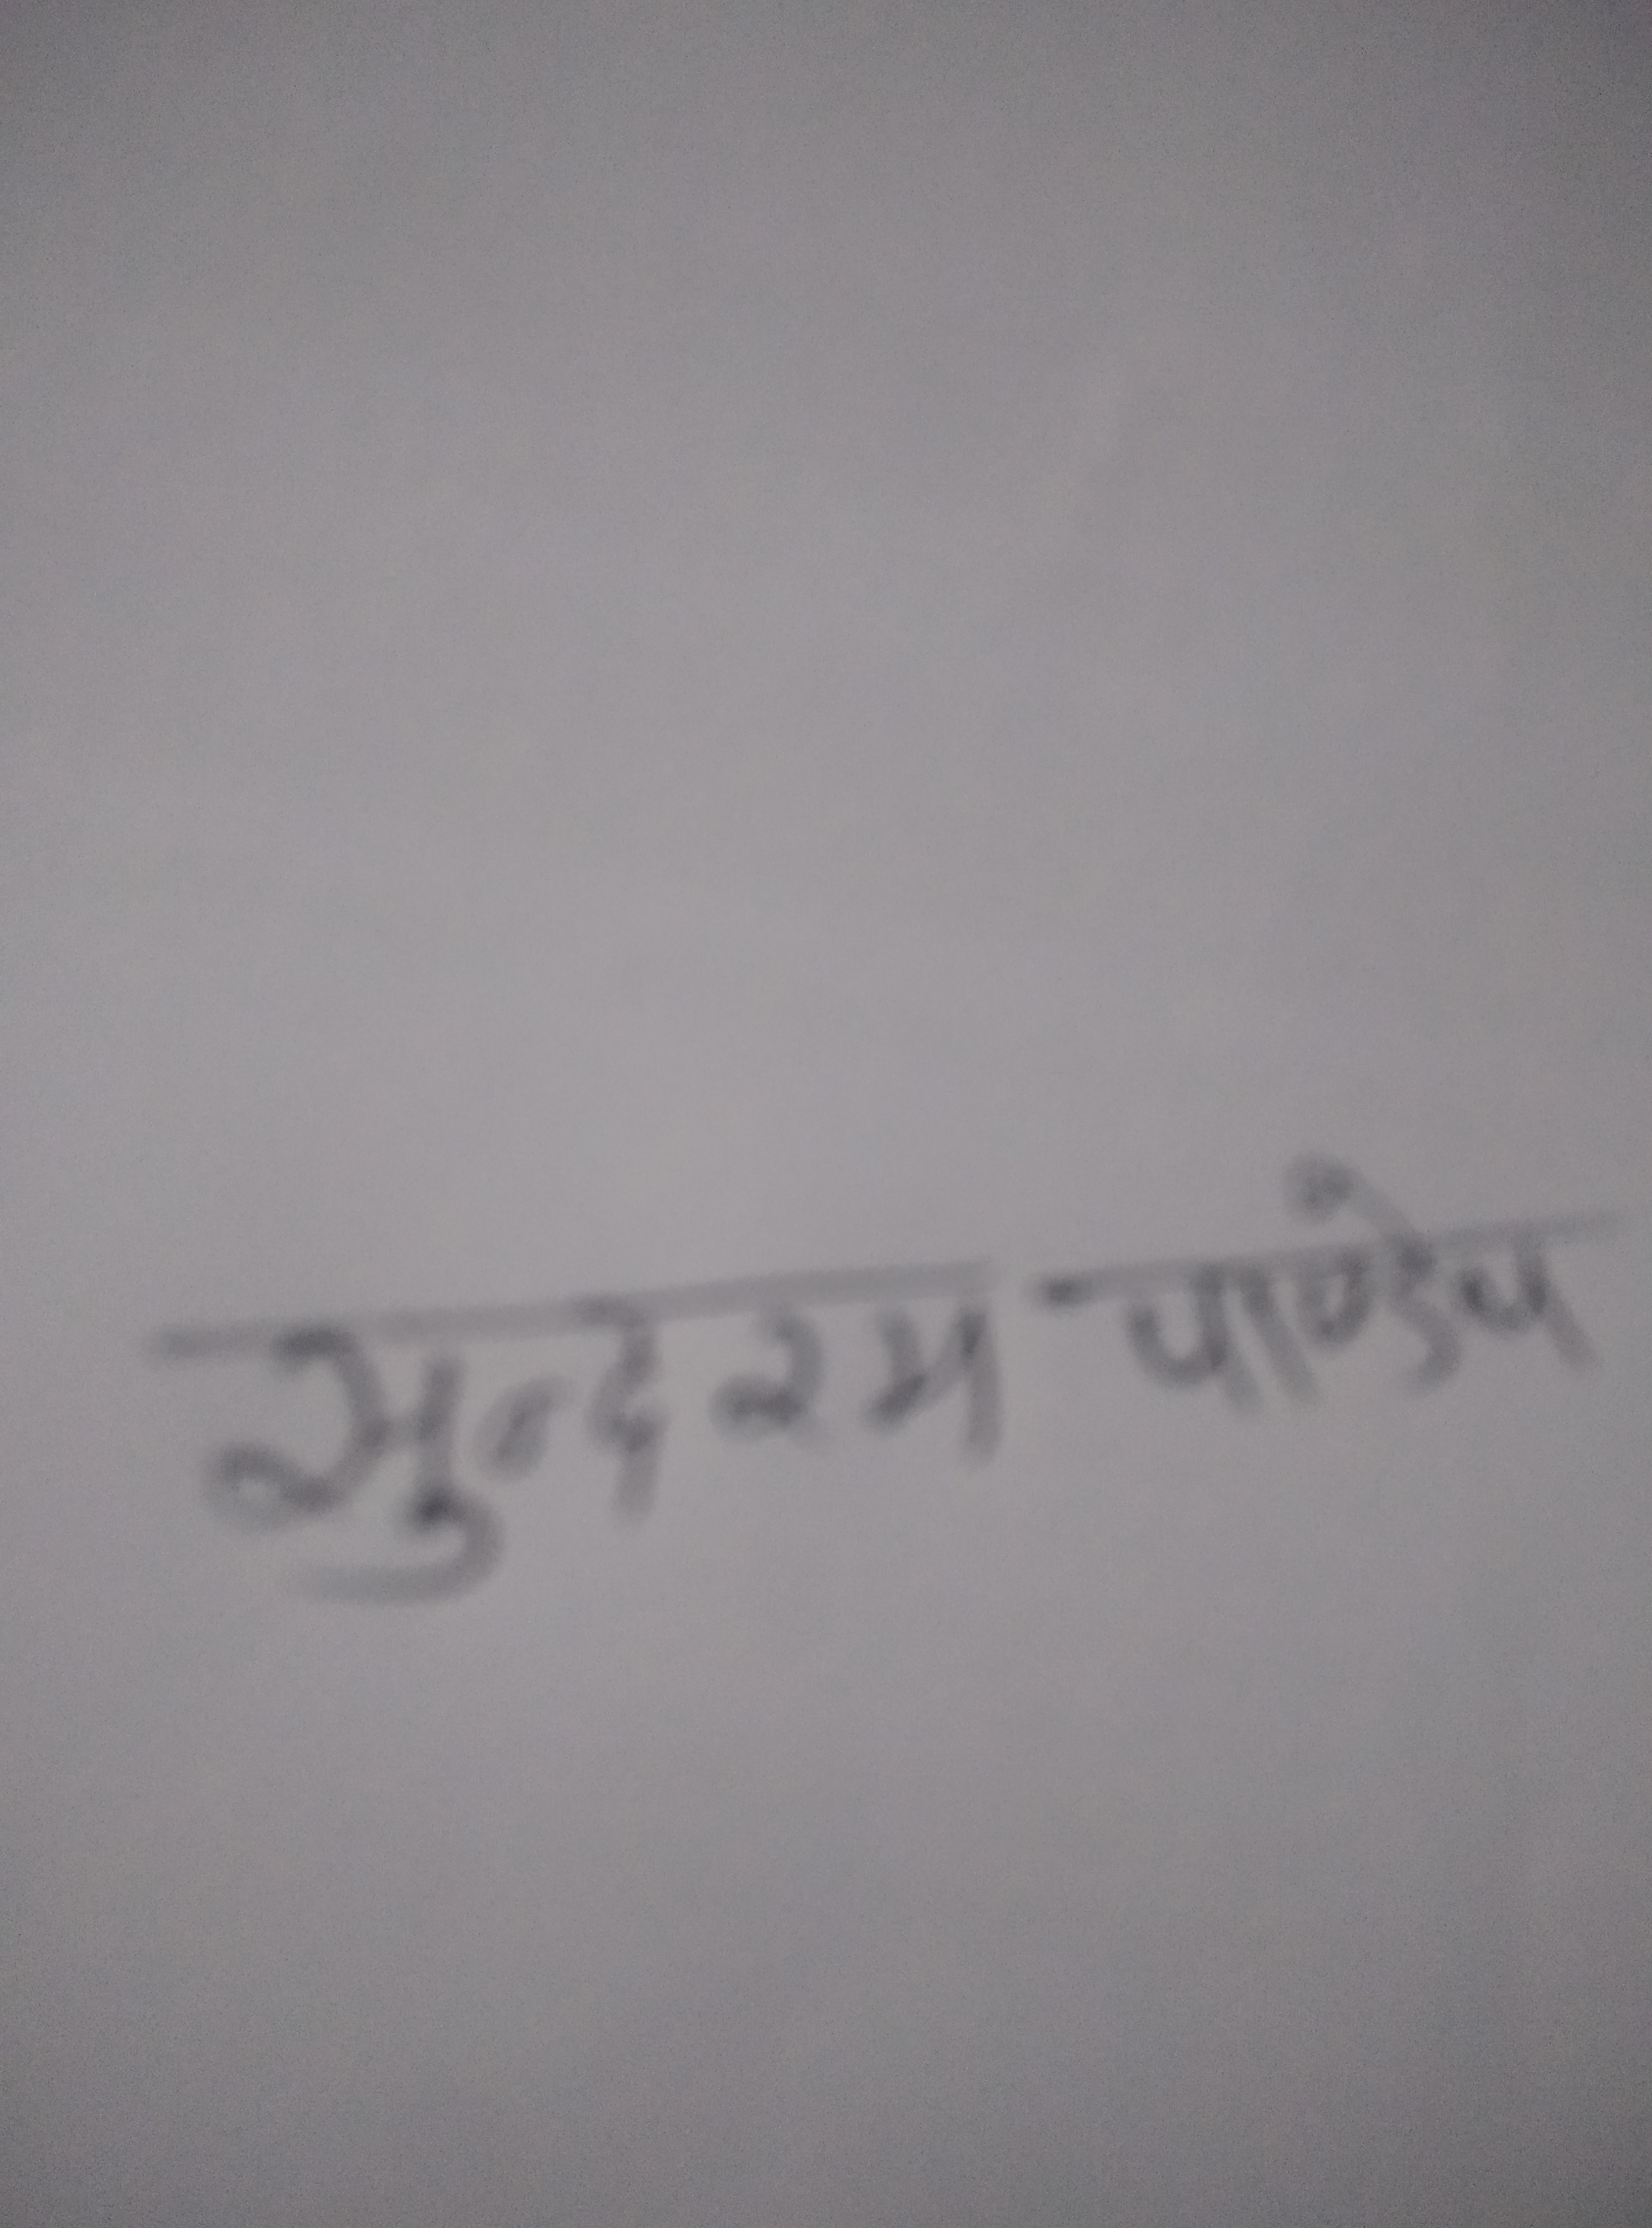 सुन्दरम पाण्डेय